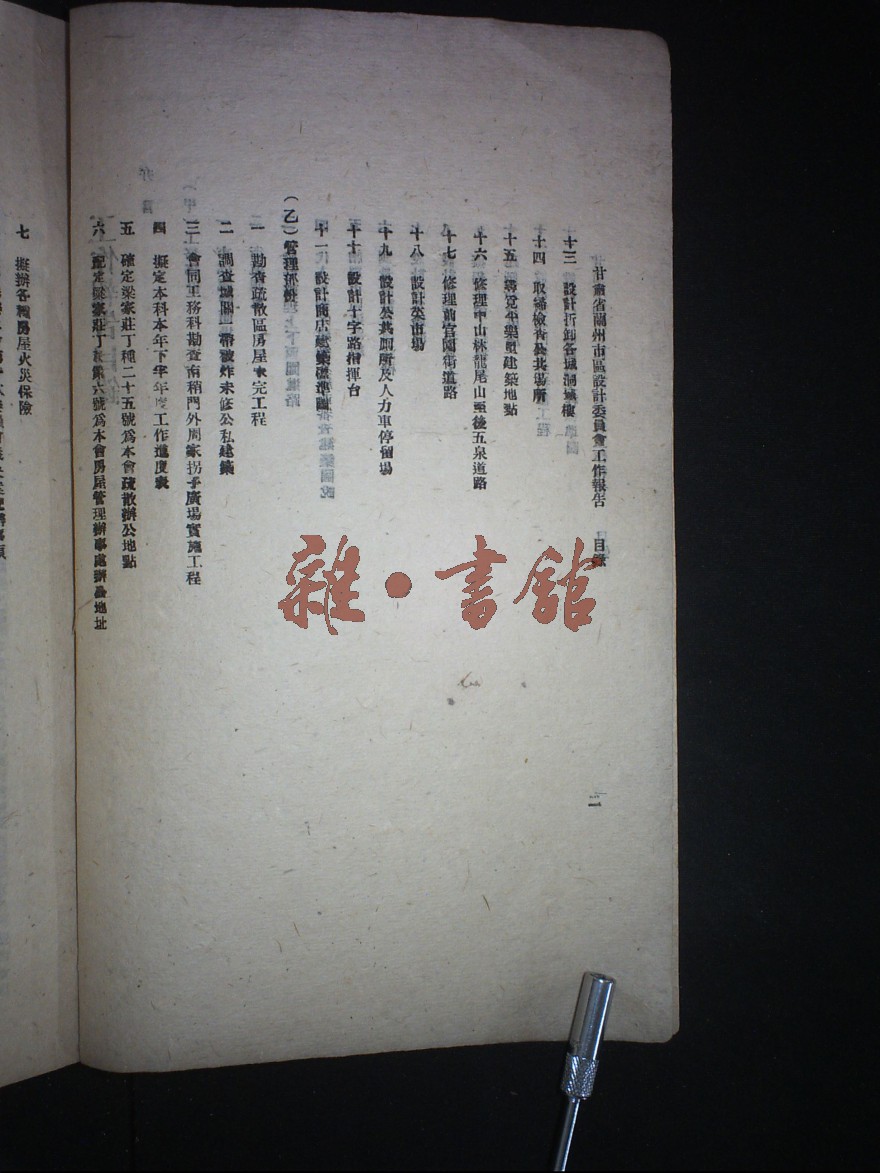 甘肅省蘭州市區設計委員會工作報告 目錄
二
十三 設計折卸各城洞城樓
十四 取締檢查公共場所
十五 尋覓坐樂塱建築地點
十六 修理中山林龍尾山至後五泉道路
十七 修理前官園街道路
十八 設計菜市場
十九 設計公共厠所及人力車停留場
二十 設計十字路指揮台
廿一 設計商店建築標準圖
(乙)管理部份
一 勘查疏散區房屋未完工程
二 調查城關一帶被炸未修公私建築
三 會同工務科勘查南稍門外周家拐子廣場實施工程
四 擬定本科本年下半年度工作進度表
五 確定梁家莊丁種二十五號爲本會疏散辦公地點
六 配定梁家莊丁種第六號爲本會房屋管理辦事處辦公地址
七 擬辦各種房屋火災保險
雜·書館